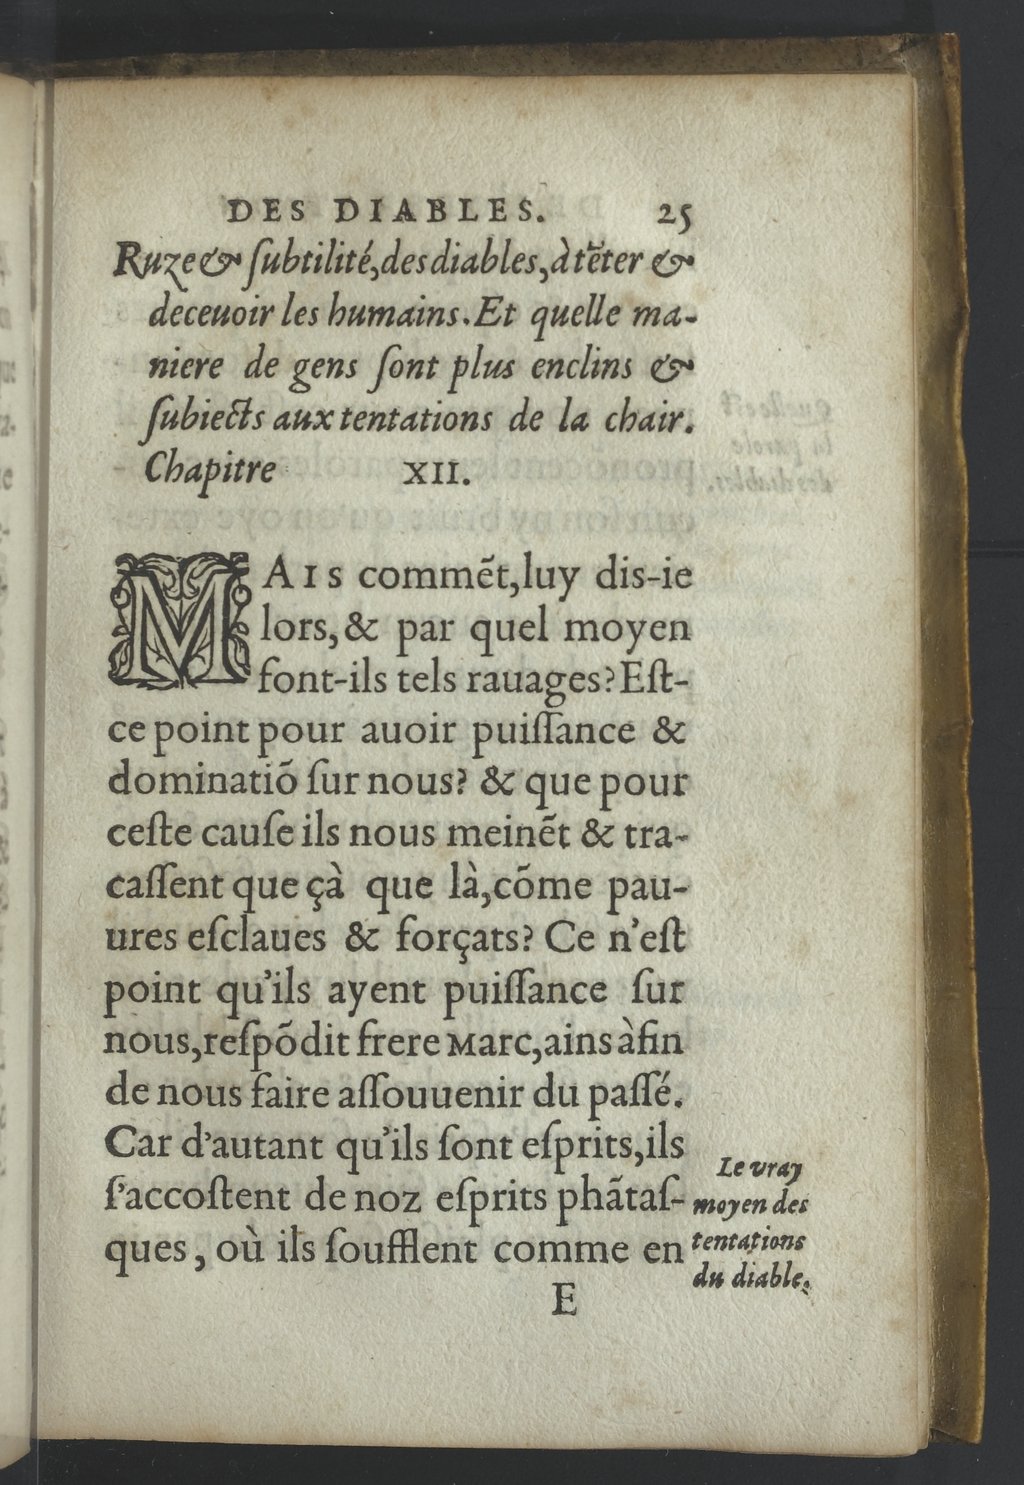 DES DIABLES. 25
Ruze & ſubtilité, des diables, à tẽter &
deceuoir les humains. Et quelle ma-
niere de gens ſont plus enclins &
ſubiects aux tentations de la chair.
Chapitre XII.
MAIS commẽt, luy dis-ie
lors, & par quel moyen
font-ils tels rauages? Eſt-
ce point pour auoir puiſſance &
dominatiõ ſur nous? & que pour
ceſte cauſe ils nous meinẽt & tra-
caſſent que çà que là, cõme pau-
ures eſclaues & forçats? Ce n'eſt
point qu'ils ayent puiſſance ſur
nous, reſpõdit frere Marc, ains àfin
de nous faire aſſouuenir du paſſé.
Car d'autant qu'ils ſont eſprits, ils
ſ'accoſtent de noz eſprits phãtaſ-
ques, où ils ſoufflent comme en
Le vray
moyen des
tentations
du diable.
E